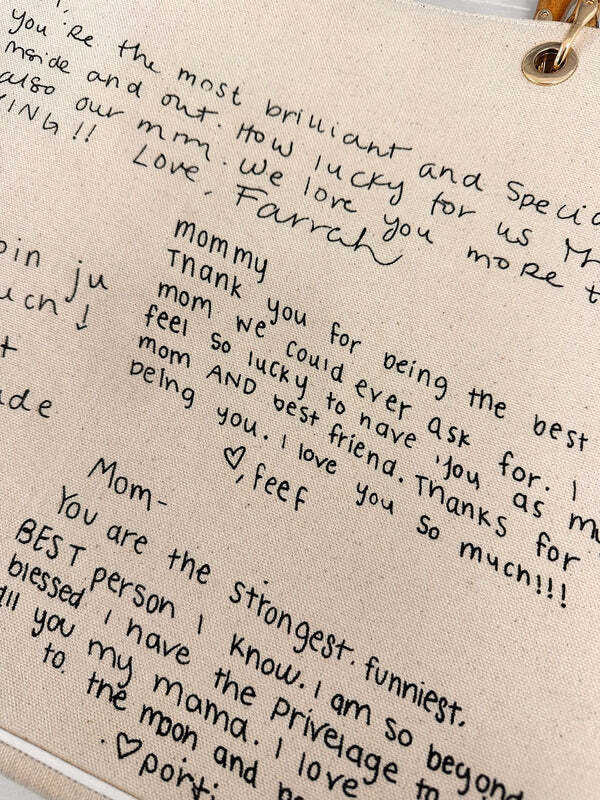 you're the most brilliant and special
inside and out. How lucky for us
also our mm. We love you more
Love, Farrah
mommy
Thank you for being the best
mom we could ever ask for. I
feel so lucky to have you as my
mom AND best friend. Thanks for
being you. I love you so much!!!
♡, feef
ju
Mom-
You are the strongest. funniest.
BEST person I know. I am so beyond
blessed I have the privelage to
you my mama. I love
to the moon and
♡